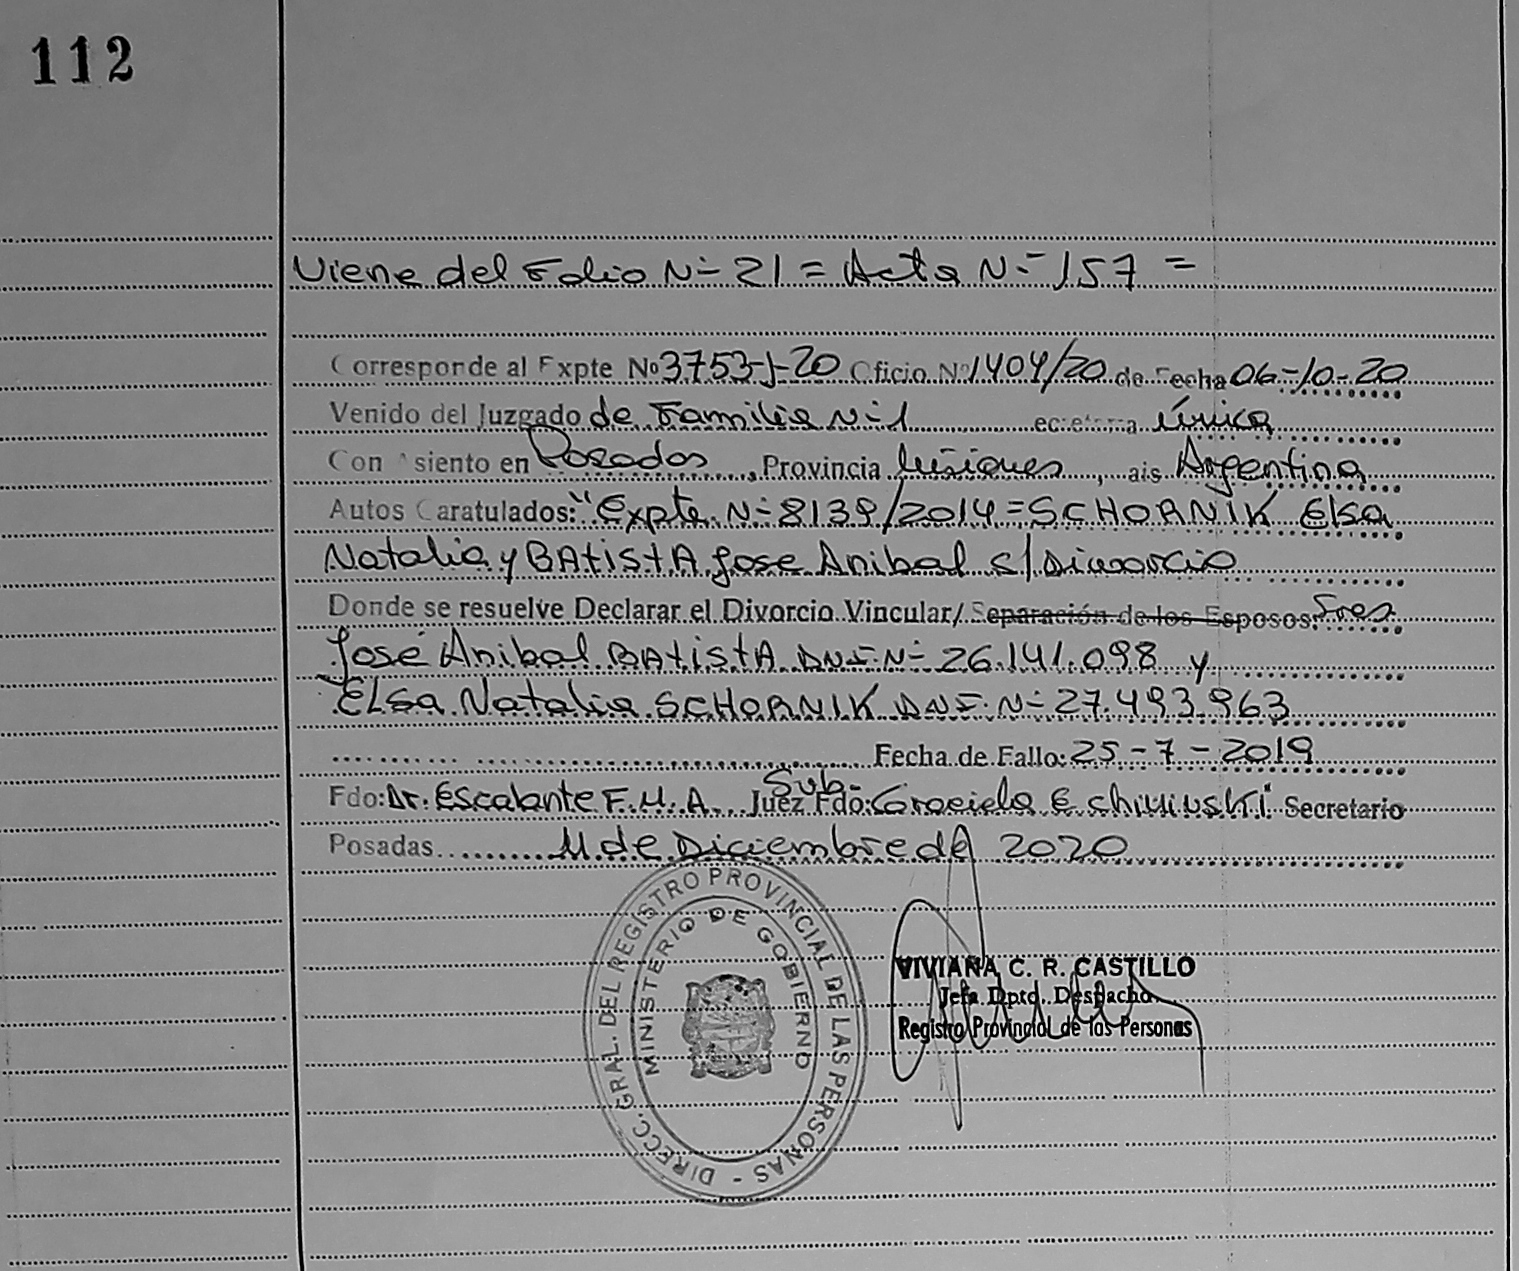 112
Viene del Folio N= 21 = Acta N=- 157 =
Corresponde al Expte Nº 3753-J-20 Oficio Nº 1404/20 de Fecha 06-10-20
Venido del Juzgado de Familia N=1 ecretaria Única
Con Asiento en Posadas, Provincia Misiones, ais Argentina
Autos Caratulados: "Expte N=8139/2014=SCHORNIK Elsa
Natalia y BAtistA Jose Anibal s/Divorcio
Donde se resuelve Declarar el Divorcio Vincular/ Separación de los Esposos: Sres.
José Anibal BAtistA DNI N= 26.141.098 y
ELsa Natalia SCHORNIK DNI N= 27.493.963
Fecha de Fallo: 25-7-2019
Fdo: Dr. Escalante F. M. A. Juez Fdo: Graciela E Sub-Secretario
Posadas 11 de Diciembre de 2020
DIRECC. GRAL. DEL REGISTRO PROVINCIAL DE LAS PERSONAS -
MINISTERIO DE GOBIERNO
VIVIANA C. R. CASTILLO
Jefa Dptd. Despacho
Registro Provincial de las Personas